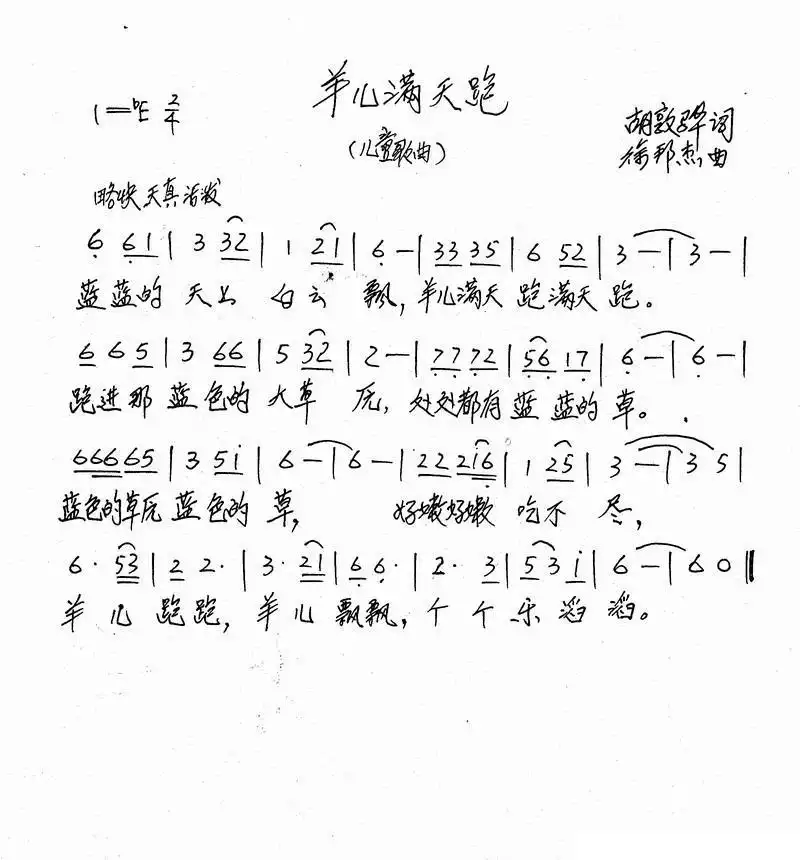 羊儿满天跑
1=♭E 2/4
(儿童歌曲)
胡敦骅词
徐邦杰曲
略快 天真活泼
6 61 | 3 32 | 1 21 | 6 — | 33 35 | 6 52 | 3 — | 3 — |
蓝蓝的 天上 白云 飘,羊儿满天 跑满天 跑。
6 6 5 | 3 66 | 5 32 | 2 — | 77 72 | 56 17 | 6 — | 6 — |
跑进那 蓝色的 大草 原,处处都有 蓝 蓝的 草。
66665 | 3 5i | 6 — | 6 — | 22 2i6 | 1 25 | 3 — | 3 5 |
蓝色的草原 蓝色的 草, 好嫩好嫩 吃不 尽,
6· 53 | 2 2· | 3· 21 | 6 6· | 2· 3 | 5 3 i | 6 — | 6 0 ‖
羊 儿 跑跑,羊 儿 飘飘,个 个 乐 滔 滔。